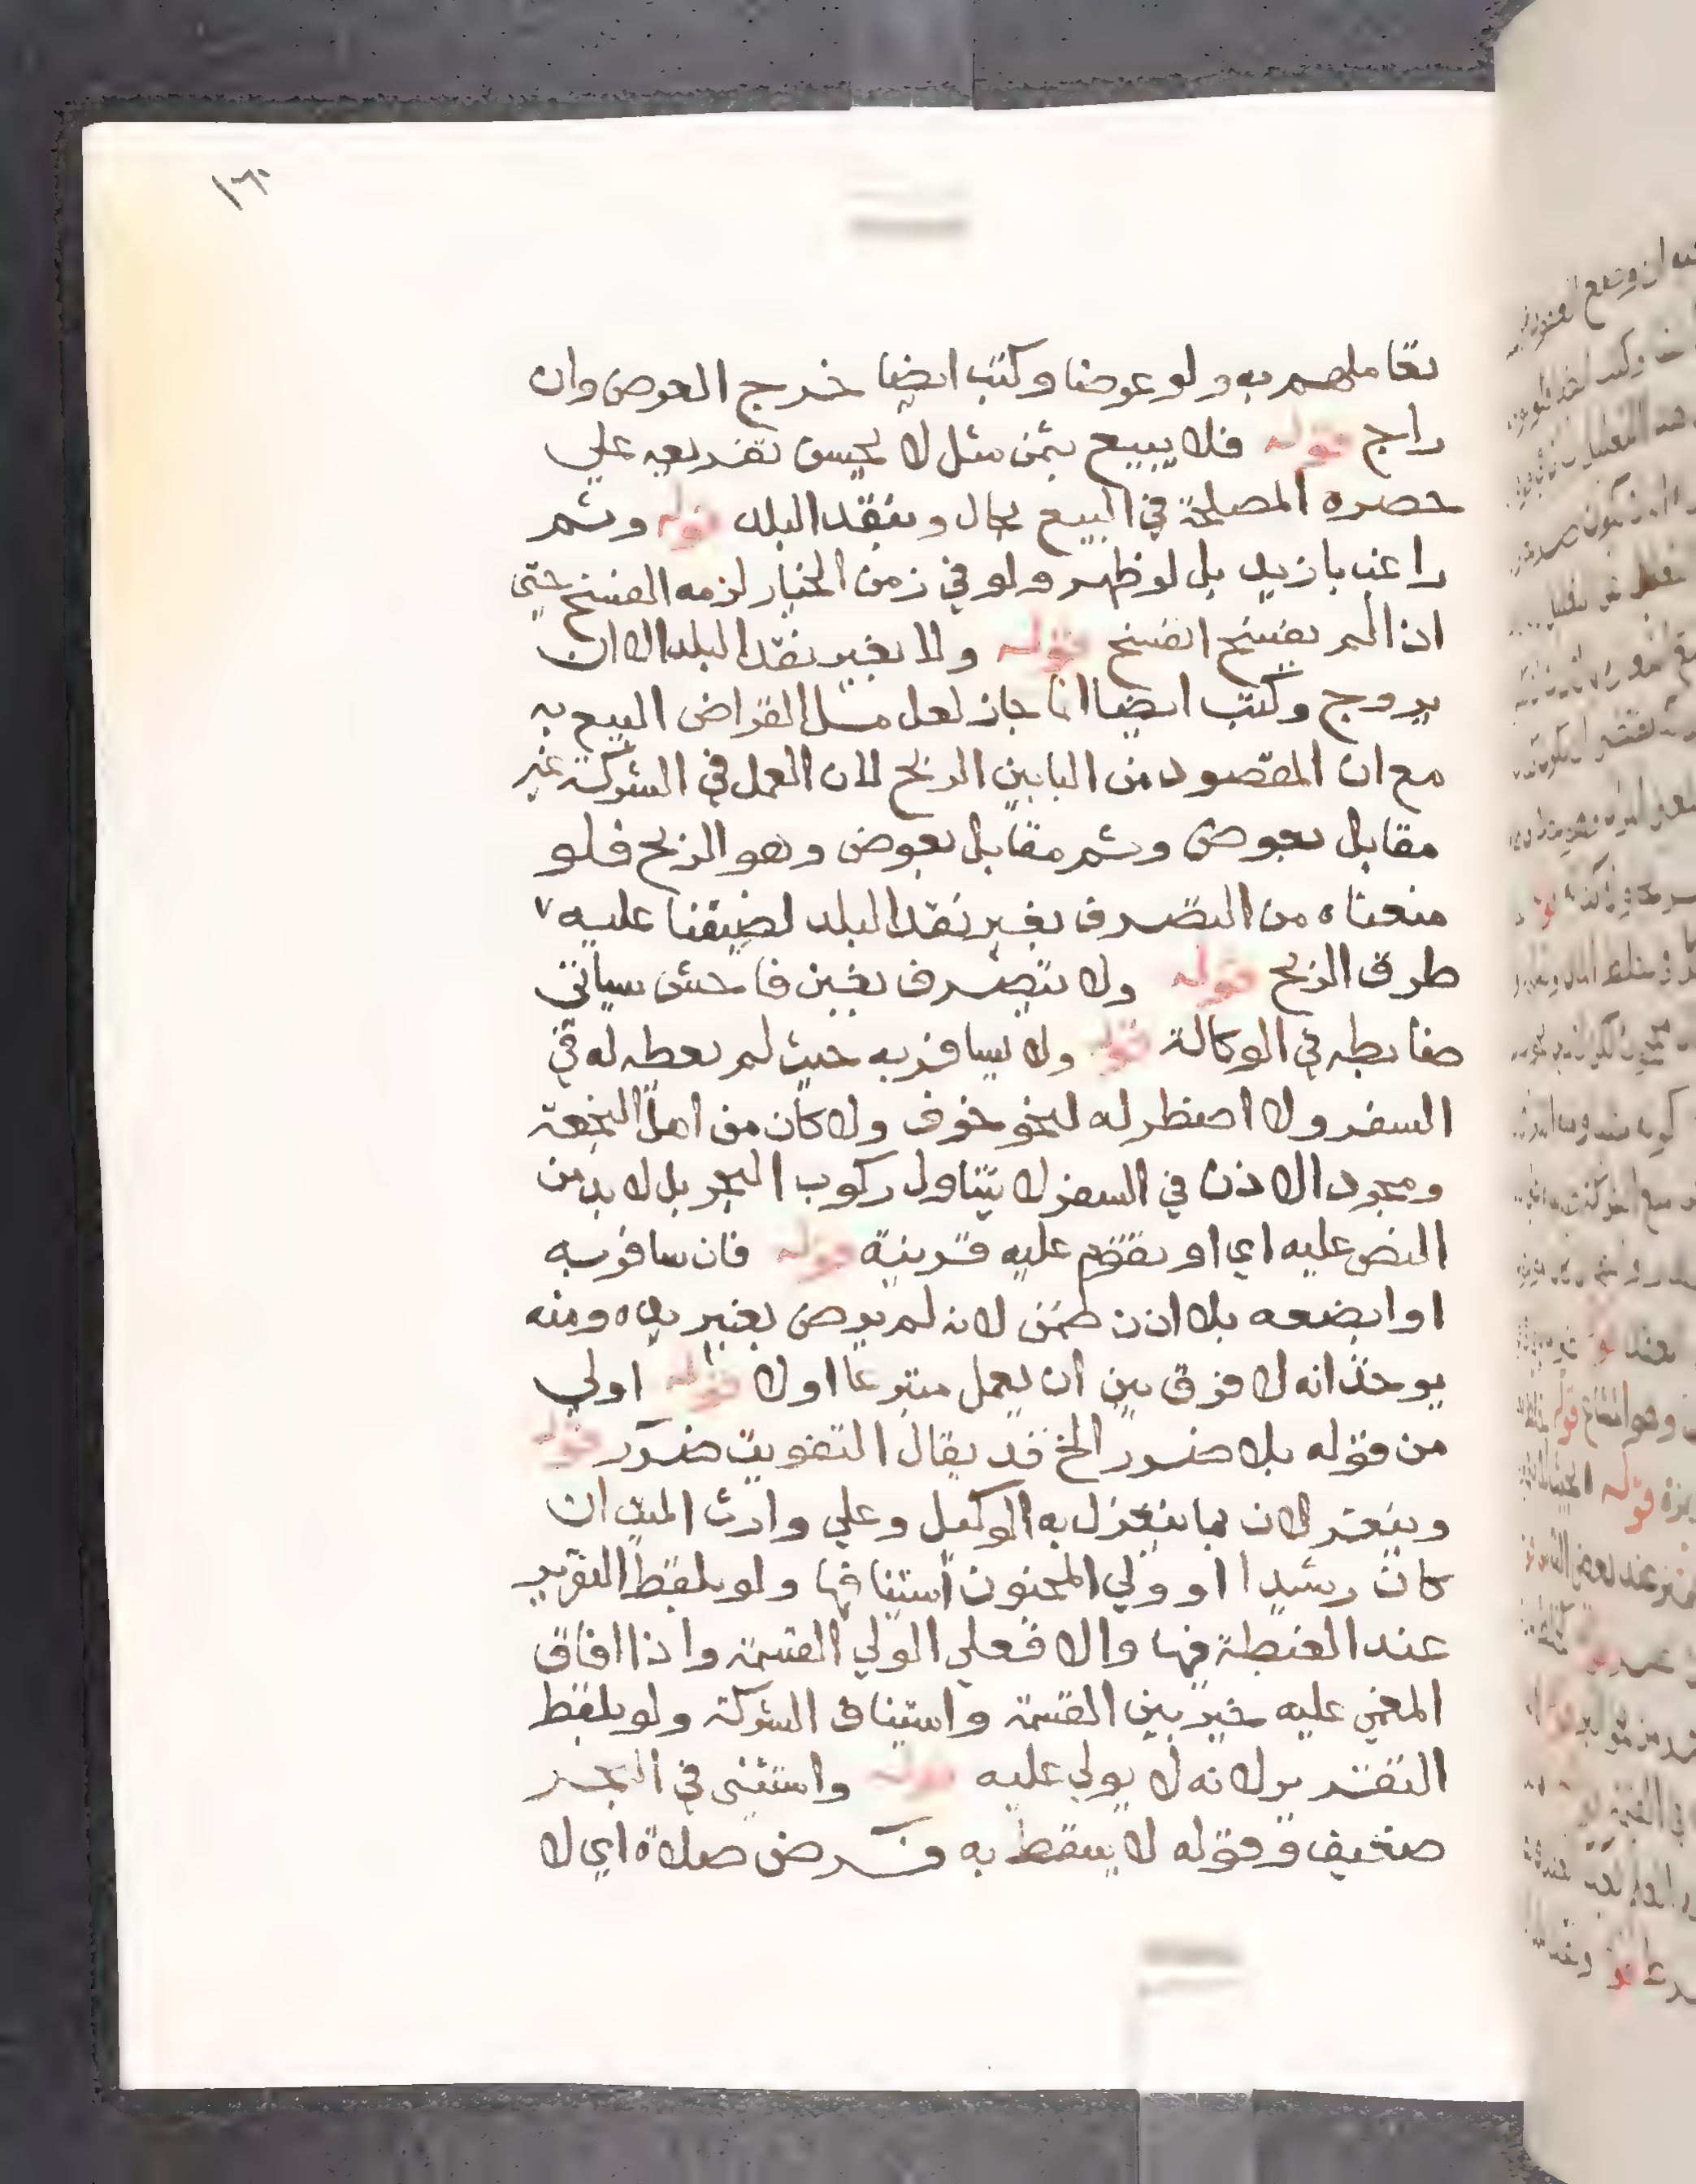 ١٦٠
تعاملهم به ولو عوضا وكتب ايضا خرج العوض وان
راج قوله فلا يبيع بثمن مثل لا يحسن تفريعه علي
حصره المصلحة في البيع بحال وبنقد البلد قوله وثم
راغب بازيد بل لو ظهر ولو في زمن الخيار لزمه الفسخ حتى
اذا لم يفسخ انفسخ قوله ولا بغير نقد البلد الا ان
يروج وكتب ايضا انما جاز لعامل القراض البيع به
مع ان المقصود من البابين الربح لان العمل في الشركة غير
مقابل بعوض وثم مقابل بعوض وهو الربح فلو
منعناه من التصرف بغير نقد البلد لضيقنا عليه
طرق الربح قوله ولا يتصرف بغبن فاحش سياتي
ضابطه في الوكالة قوله ولا يسافر به حيث لم يعطه له في
السفر ولا اضطر له لنحو خوف ولا كان من اهل النجعة
ومجرد الاذن في السفر لا يتناول ركوب البحر بل لا بد من
النص عليه اي او تقوم عليه قرينة قوله فان سافر به
او ابضعه بلا اذن ضمن لانه لم يرض بغير يده ومنه
يوخذ انه لا فرق بين ان يعمل متبرعا اولا قوله اولي
من قوله بلا ضرر الخ قد يقال التفويت ضرر قوله
وينعزلان بما ينعزل به الوكيل وعلي وارث الميت ان
كان رشيدا او ولي المجنون استئنافها ولو بلفظ التقرير
عند الغبطة فيها والا فعلي الولي القسمة واذا افاق
المغمي عليه خير بين القسمة واستيناف الشركة ولو بلفظ
التقرير لانه لا يولي عليه قوله واستثنى في البحر
ضعيف وقوله لا يسقط به فرض صلاة اي لا